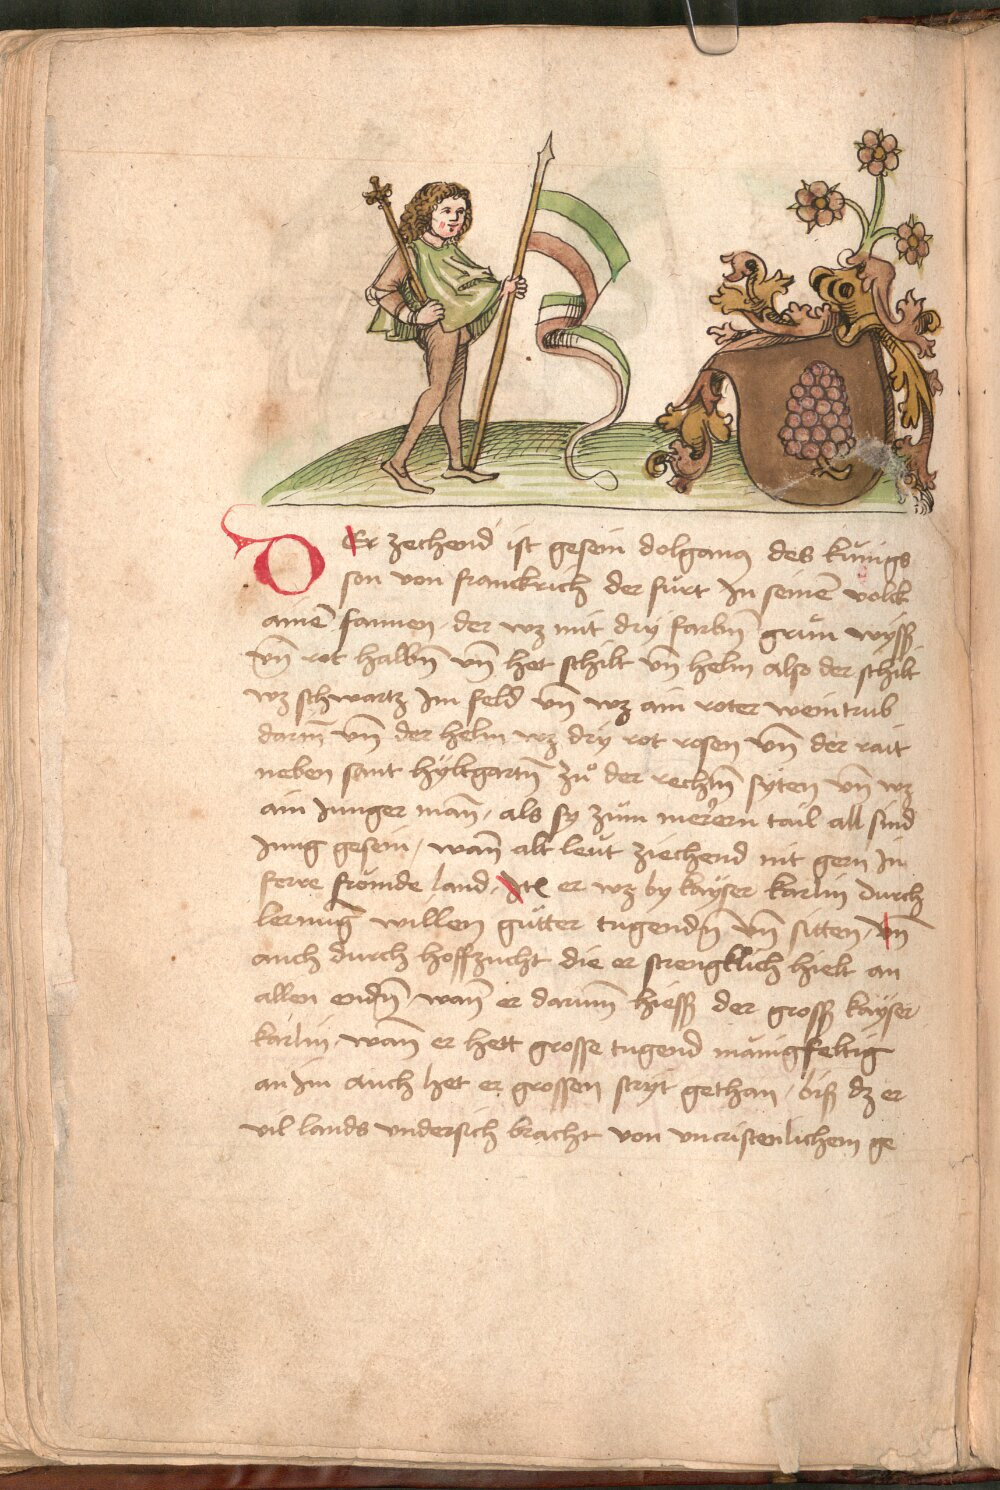 DEr zechend ist gesein dolgamg des kuͤnigs
son von franckrich der fuͤrt In seinē volck
ainē fannen / der wz mit dry farbn̄ gruͤn wyſſ
vn̄ rot halbn̄ vn̄ het schilt vn̄ helm also der schilt
wz schwartz Im feld vn̄ wz ain roter weintrub
darin̄ vn̄ der helm wz dry rot rosen vn̄ der rait
neben sant hyltgartn̄ zuͦ der rechtn̄ syten vn̄ wz
ain Junger man̄ / als sy zuͦm merern tail all sind
Jung gesein / wan̄ alt leuͤt ziechend nit gern In
ferre froͤmde land / Itē er wz by kayser karlin durch
lernung willen guͤtter tugendn̄ vn̄ sitten / vn̄
auch durch hoffzucht die er strengklich hielt an
allen endn̄ / wan̄ er darum̄ hieſſ der groſſ kayser
karlin / wan̄ er hett grosse tugend mānigfeltig
an Im auch het er grossen stryt gethan / biſ dz er
vil lands vndersich bracht von vncristenlichem ge